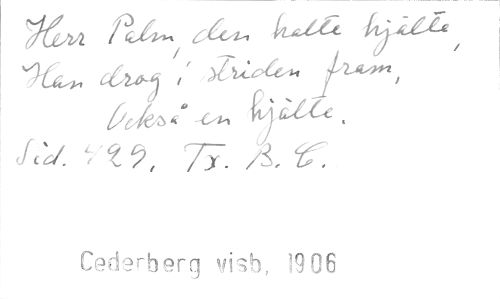 Herr Palm, den kalte hjälte,
Han drog i striden fram,
Också en hjälte.
Sid. 429, Tx. B. C.
Cederberg visb, 1906